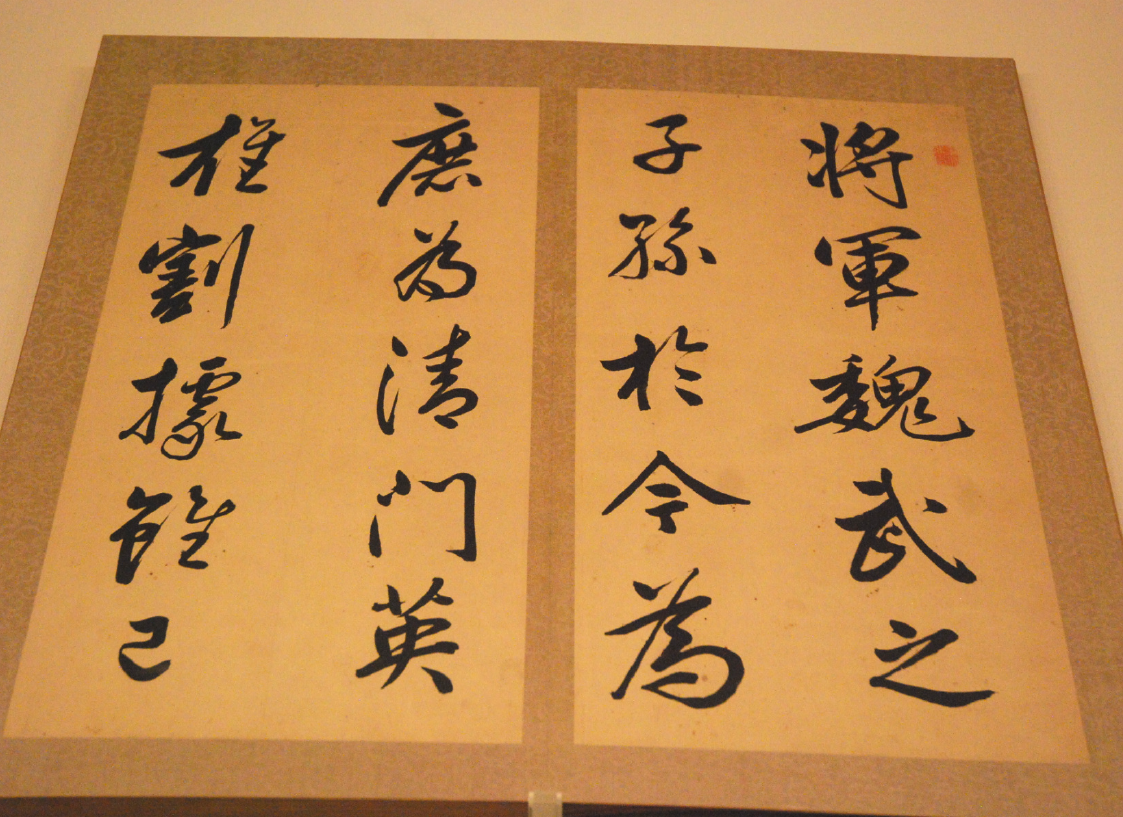 將軍魏武之
子孫於今為
庶為清門英
雄割據雖已